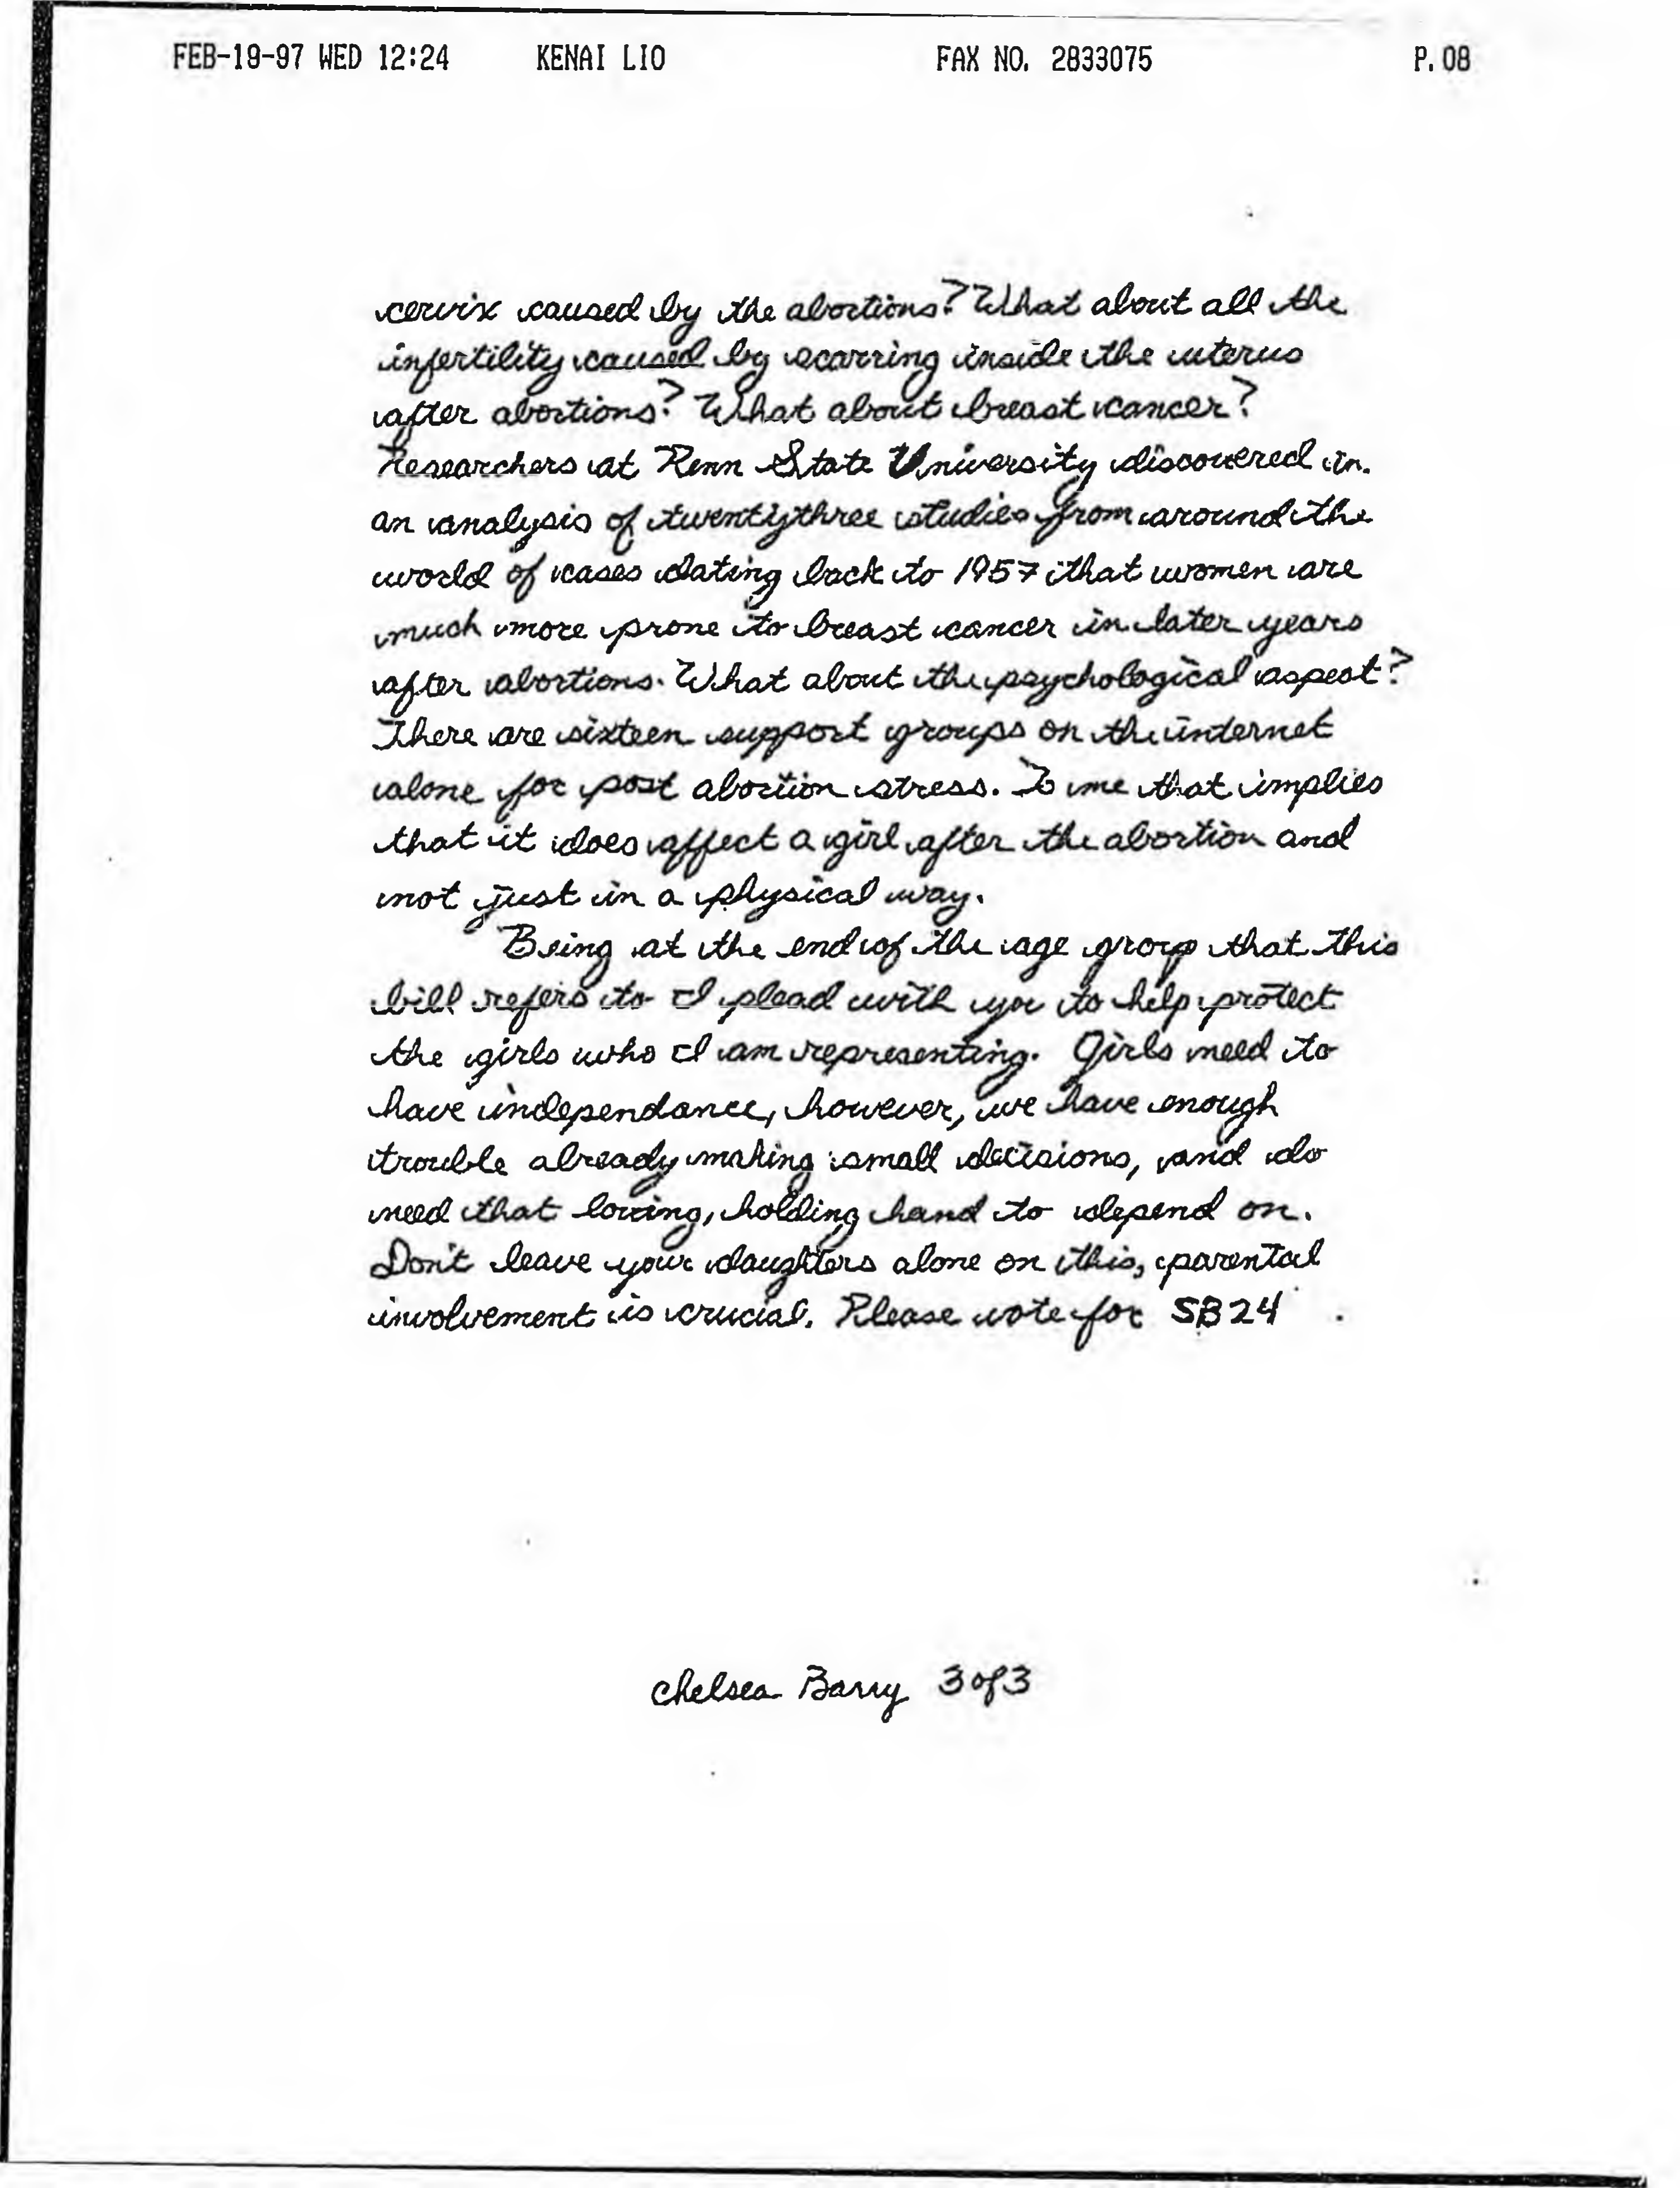 FEB-19-97 WED 12:24 KENAI LIO FAX NO. 2833075 P. 08
cervix caused by the abortions? What about all the
infertility caused by scarring inside the uterus
after abortions? What about breast cancer?
Researchers at Penn State University discovered in
an analysis of twentythree studies from around the
world of cases dating back to 1957 that women are
much more prone to breast cancer in later years
after abortions. What about the psychological aspect?
There are sixteen support groups on the internet
alone for post abortion stress. To me that implies
that it does affect a girl after the abortion and
not just in a physical way.
Being at the end of the age group that this
bill refers to I plead with you to help protect
the girls who I am representing. Girls need to
have independance, however, we have enough
trouble already making small decisions, and do
need that loving, holding hand to depend on.
Don't leave your daughters alone on this, parental
involvement is crucial. Please vote for SB24.
Chelsea Barry 3 of 3